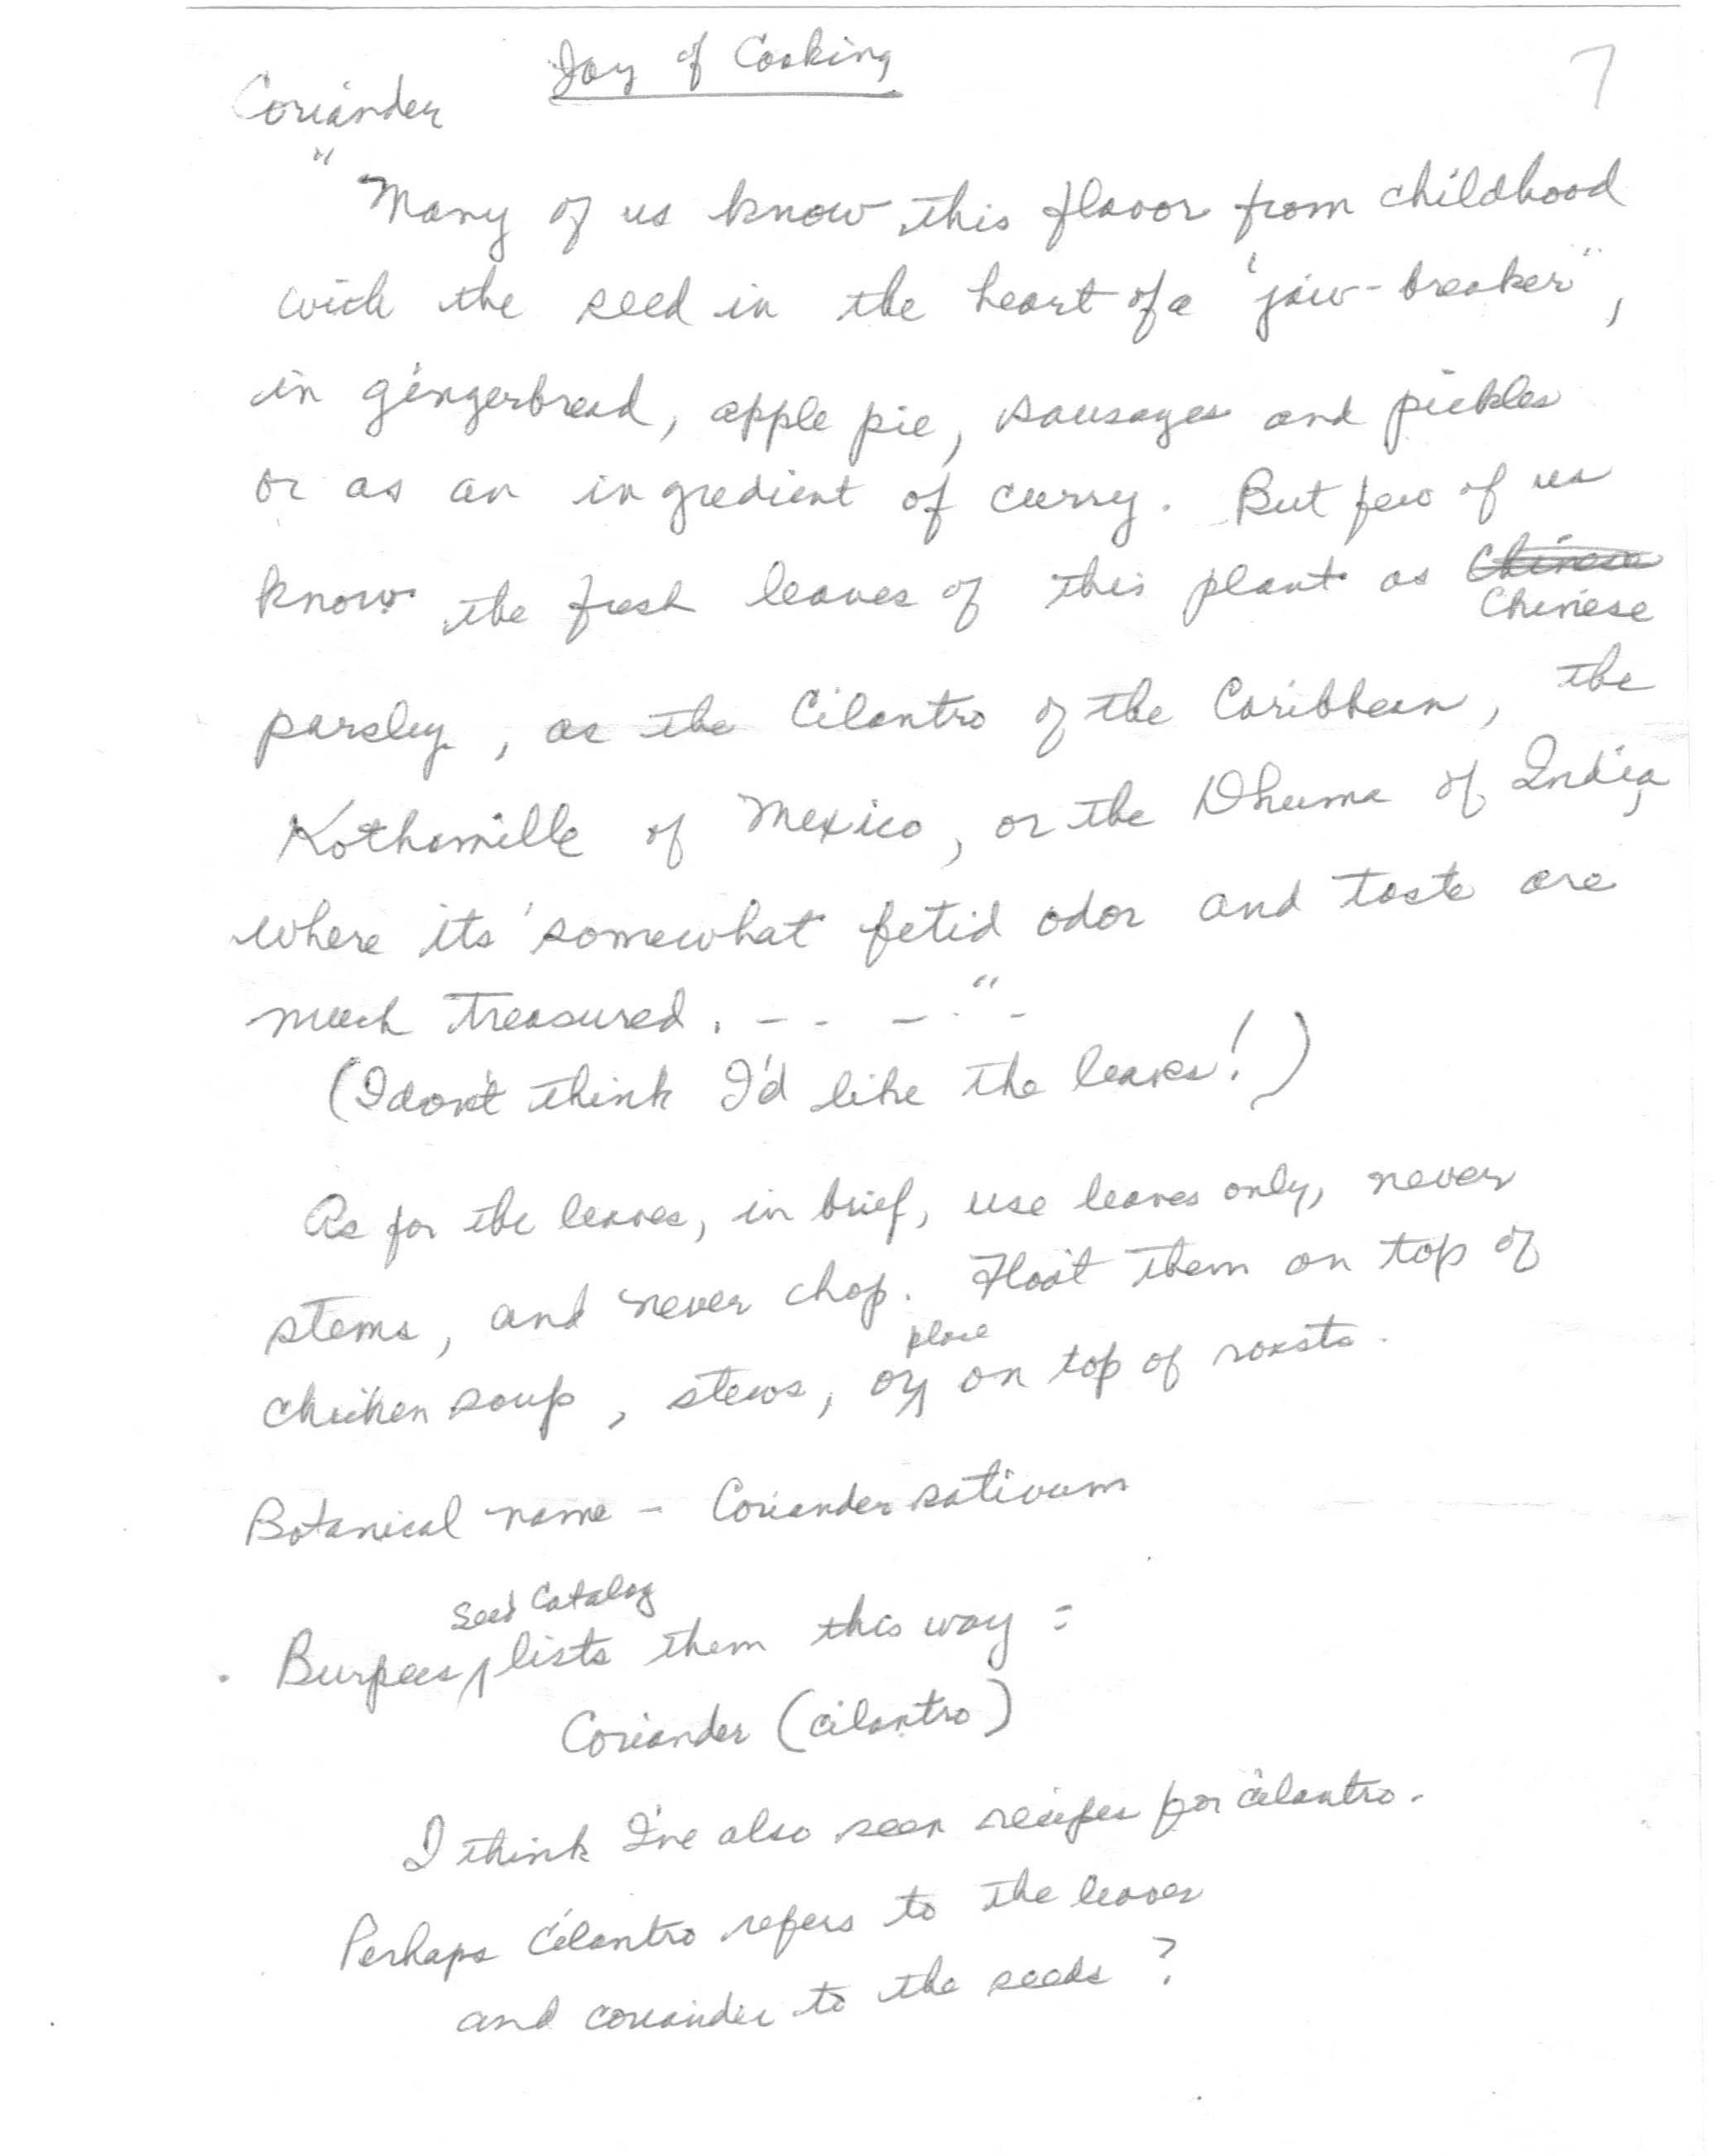 Joy of Cooking
7
Coriander
"Many of us know this flavor from childhood
with the seed in the heart of a 'jaw-breaker",
in gingerbread, apple pie, sausages and pickles
or as an ingredient of curry. But few of us
know the fresh leaves of this plant as Chinese
Chinese
parsley, as the Cilantro of the Caribbean, the
Kothamille of Mexico, or the Dhuma of India,
where its somewhat fetid odor and taste are
much treasured. - - - - "-
(I don't think I'd like the leaves!)
As for the leaves, in brief, use leaves only, never
stems, and never chop. Float them on top of
place
chicken soup, stews, or on top of roasts.
Botanical name - Coriander sativum
Seed Catalog
. Burpees lists them this way:
Coriander (cilantro)
I think I've also seen recipes for cilantro.
Perhaps cilantro refers to the leaves
and coriander to the seeds?